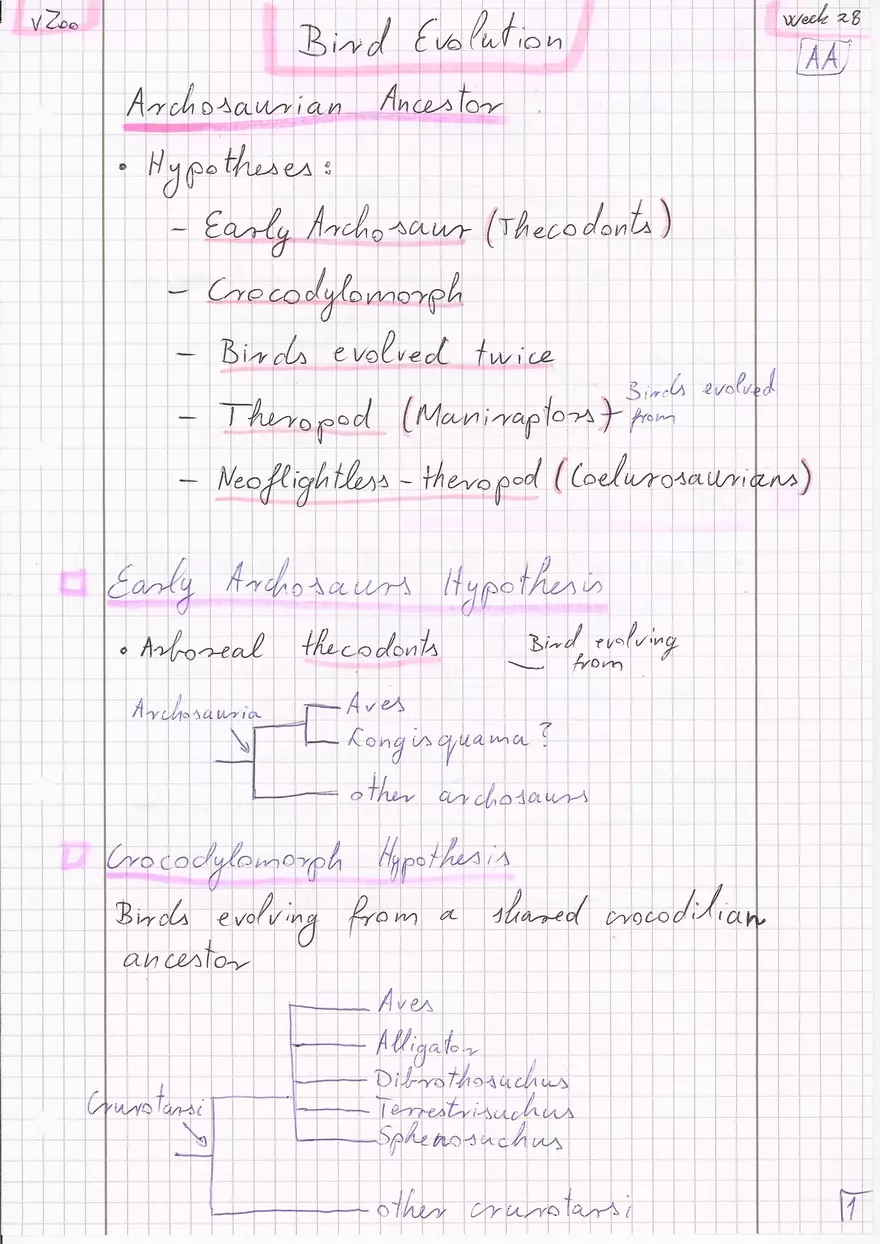 vZoo
Bird Evolution
Week 28
AA
Archosaurian Ancestor
• Hypotheses:
- Early Archosaur (Thecodonts)
- Crocodylomorph
- Birds evolved twice
- Theropod (Maniraptors) - Birds evolved from
- Neoflightless-theropod (Coelurosaurians)
Early Archosaurs Hypothesis
• Arboreal thecodonts
Bird evolving
from
Archosauria
Aves
Longisquama?
other archosaurs
Crocodylomorph Hypothesis
Birds evolving from a shared crocodilian
ancestor
Aves
Alligator
Dibrothosuchus
Crurotarsi
Terrestrisuchus
Sphenosuchus
other crurotarsi
1